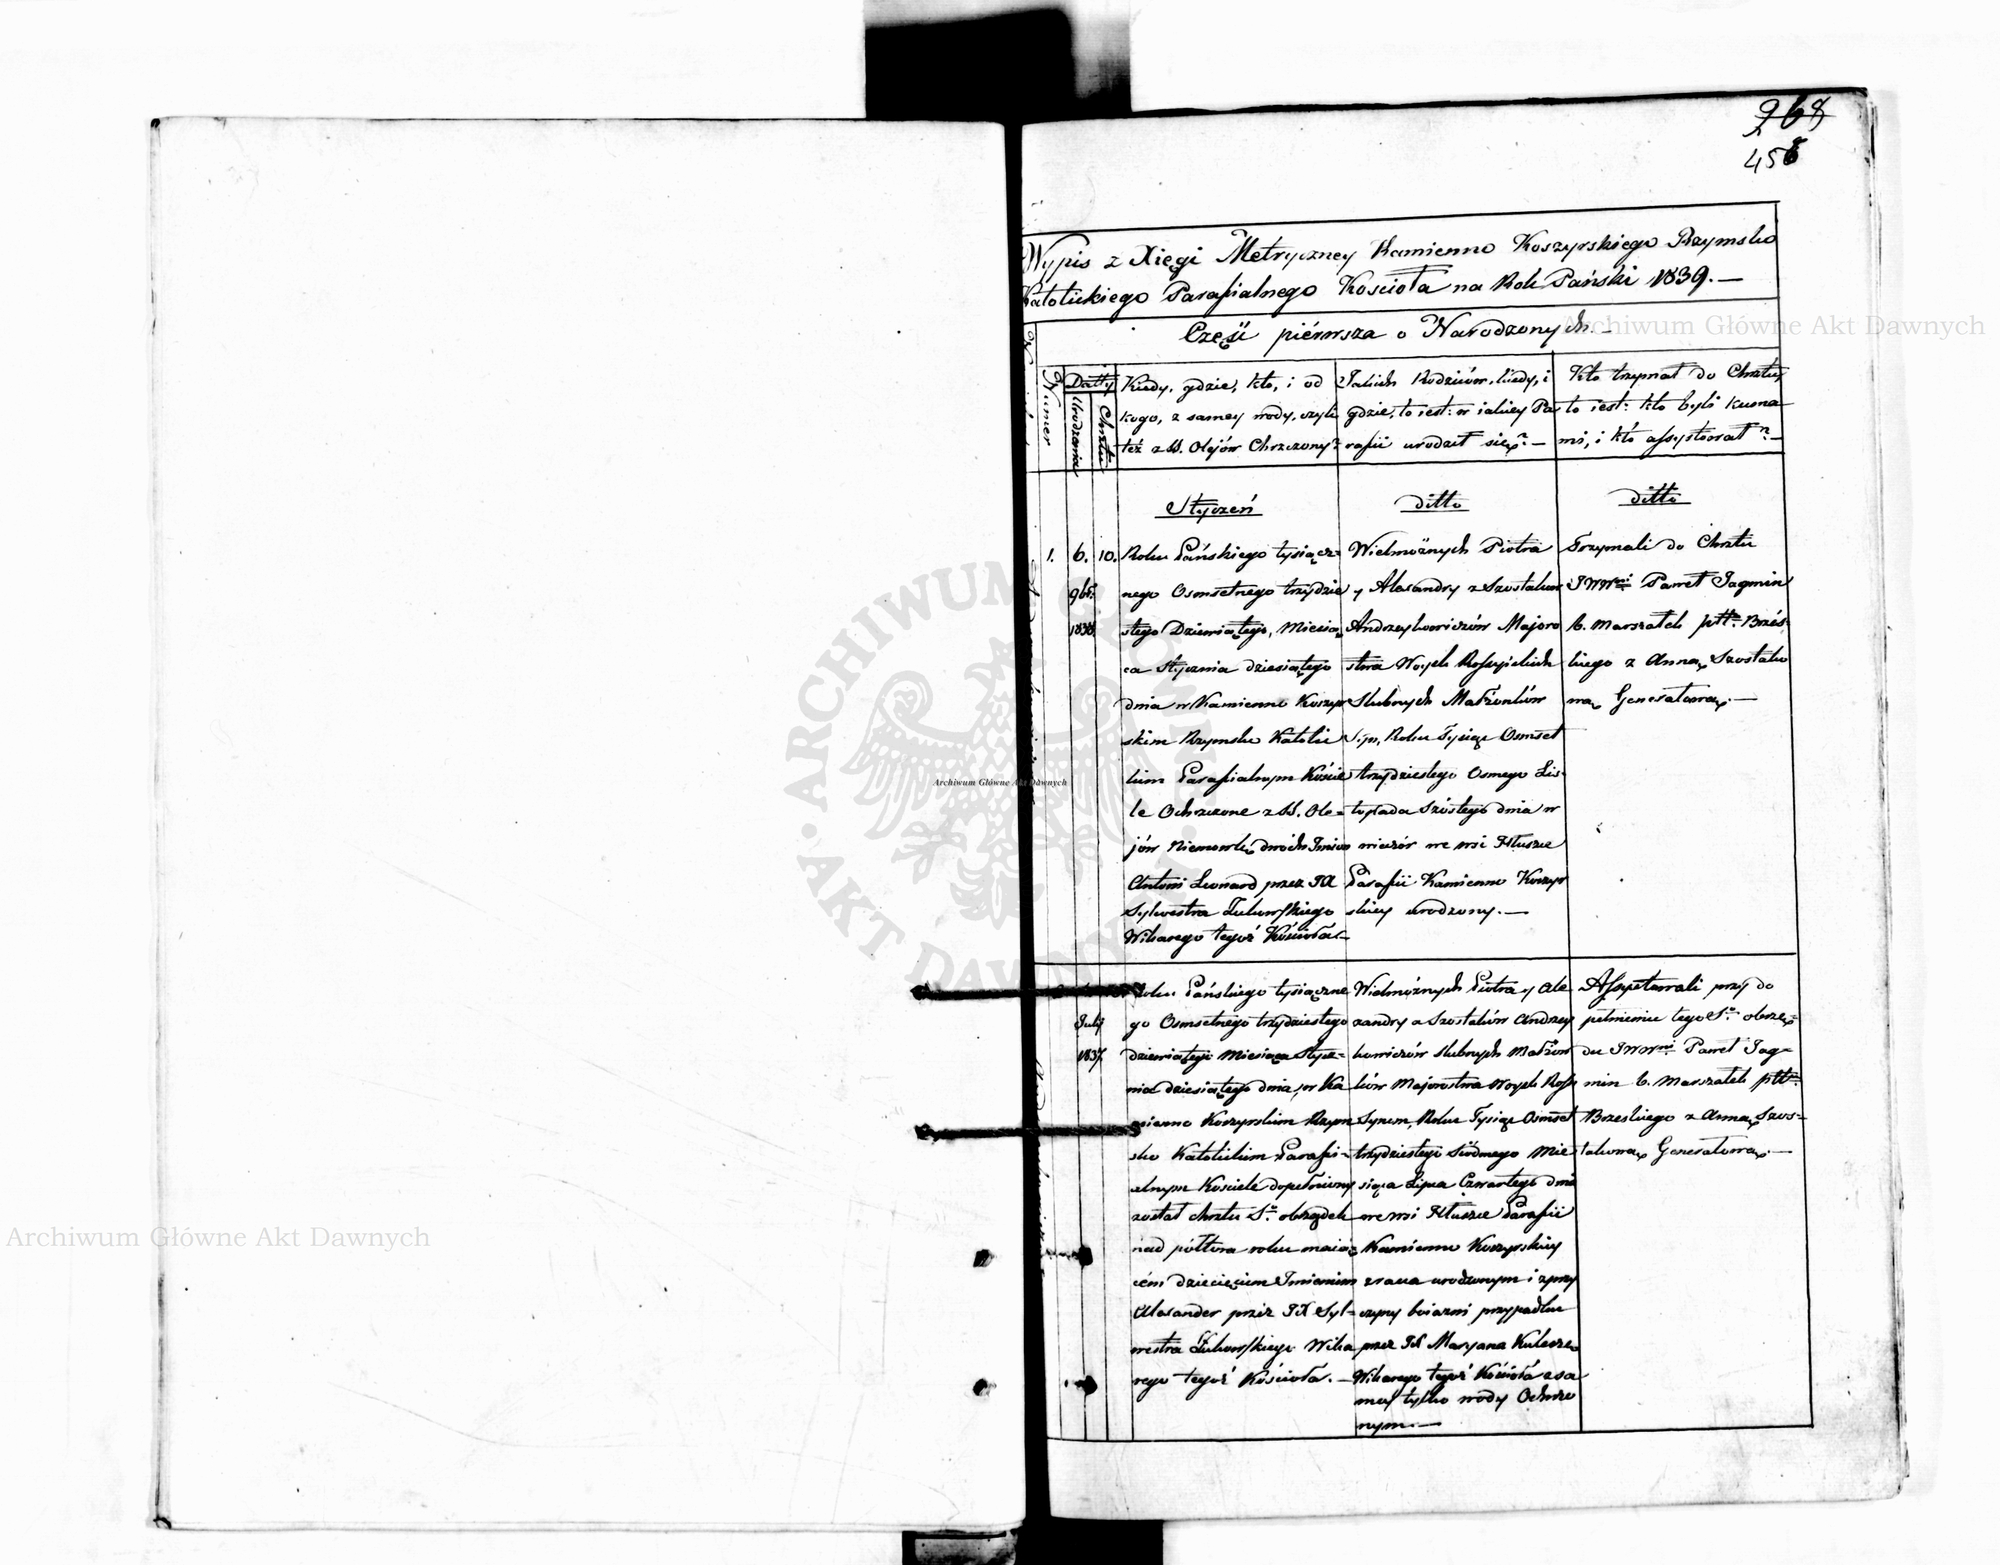 968
458
Wypis z Xięgi Metryczney Kamienno Koszyrskiego Rzymsko
Katolickiego Parafialnego Kościoła na Rok Pański 1839. —
Część piérwsza o Narodzonych. —
Numer
Datty
Urodzenia
Chrztu
Kiedy, gdzie, kto, i od
kogo, z samey wody, czyli
też z SS. Olejów Chrzczony?
Jakich Rodziców, kiedy, i
gdzie, to iest: w iakiey Pa
rafii urodził się? —
Kto trzymał do Chrztu,
to iest: kto byli Kuma
mi, i kto assystował? —
Styczeń
ditto
ditto
1.
6.
9br.
1838.
10.
Roku Pańskiego tysiącz-
nego Osmsetnego trzydzie
stego Dziewiątego, Miesią
ca Stycznia dziesiątego
dnia w Kamienno Koszyr
skim Rzymsko Katolic
kim Parafialnym Koście
le Ochrzczone z SS. Ole-
jów Niemowle dwóch Imion
Antoni Leonard przez JX
Sylwestra Żukowskiego
Wikarego tegoż Kościoła. —
Wielmożnych Piotra
y Alexandry z Szostaków
Andrzeykowiczów Majoro
stwa Woysk Rossyiskich
Slubnych Małżonków
Syn, Roku Tysiąc Osmset
trzydziestego Osmego Lis-
topada Szóstego dnia w
wieczór we wsi Hłusze
Parafii Kamienno Koszyr
skiey urodzony. —
Trzymali do Chrztu
JWWni Paweł Jagmin
b. Marszałek pttu Brzés-
kiego z Anną Szostako
wą Generałową. —
July
1837.
Roku Pańskiego tysiączne
go Osmsetnego trzydziestego
dziewiątego Miesiąca Stycz-
nia dziesiątego dnia, w Ka
mienno Koszyrskim Rzym
sko Katolickim Parafi-
alnym Kościele dopełniony
został chrztu So. obrządek
nad półtora roku maią-
cém dziecięciem Imieniem
Alexander przez JX Syl-
westra Żukowskiego Wika
rego tegoż Kościoła. —
Wielmożnych Piotra y Ale
xandry z Szostaków Andrzey
kowiczów slubnych Małżon
ków Majorostwa Woysk Ross
Synem, Roku Tysiąc Osmset
trzydziestego Siódmego Mie
siąca Lipca Czwartego dnia
we wsi Hłusze Parafii
Kamienno Koszyrskiey
zrana urodzonym i z przy
czyny boiazni przypadku
przez JX Maryana Kulesze
Wikarego tegoż Kościoła z sa
mey tylko wody Ochrzczo
nym. —
Assystowali przy do
pełnieniu tego So. obrzę-
du JWWni Paweł Jag-
min b. Marszałek pttu.
Brzeskiego z Anną Szos-
takową Generałową. —
Archiwum Główne Akt Dawnych
Archiwum Główne Akt Dawnych
Archiwum Główne Akt Dawnych
ARCHIWUM GŁÓWNE
AKT DAWNYCH